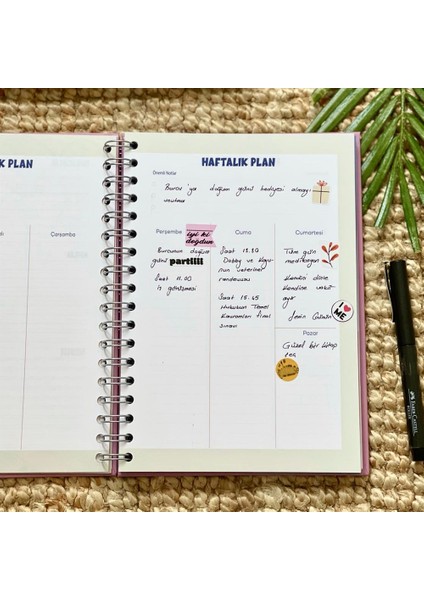 K PLAN
Çarşamba
HAFTALIK PLAN
Önemli Notlar
Burcu'ya doğum günü hediyesi almayı
unutma
Perşembe
iyi ki
doğdun
Burcunun doğum
günü partiiii
Saat 11.00
iş görüşmesi
Cuma
Saat
Dobby ve
nun veteriner
randevusu
Saat 15.45
Hukukun Temel
Kavramları final
sınavı
Cumartesi
Tüm gün
meditasyon
Kendini dinle
Kendine vakit
ayır
I ME
Pazar
Güzel bir kitap
seç
FABER-CASTELL